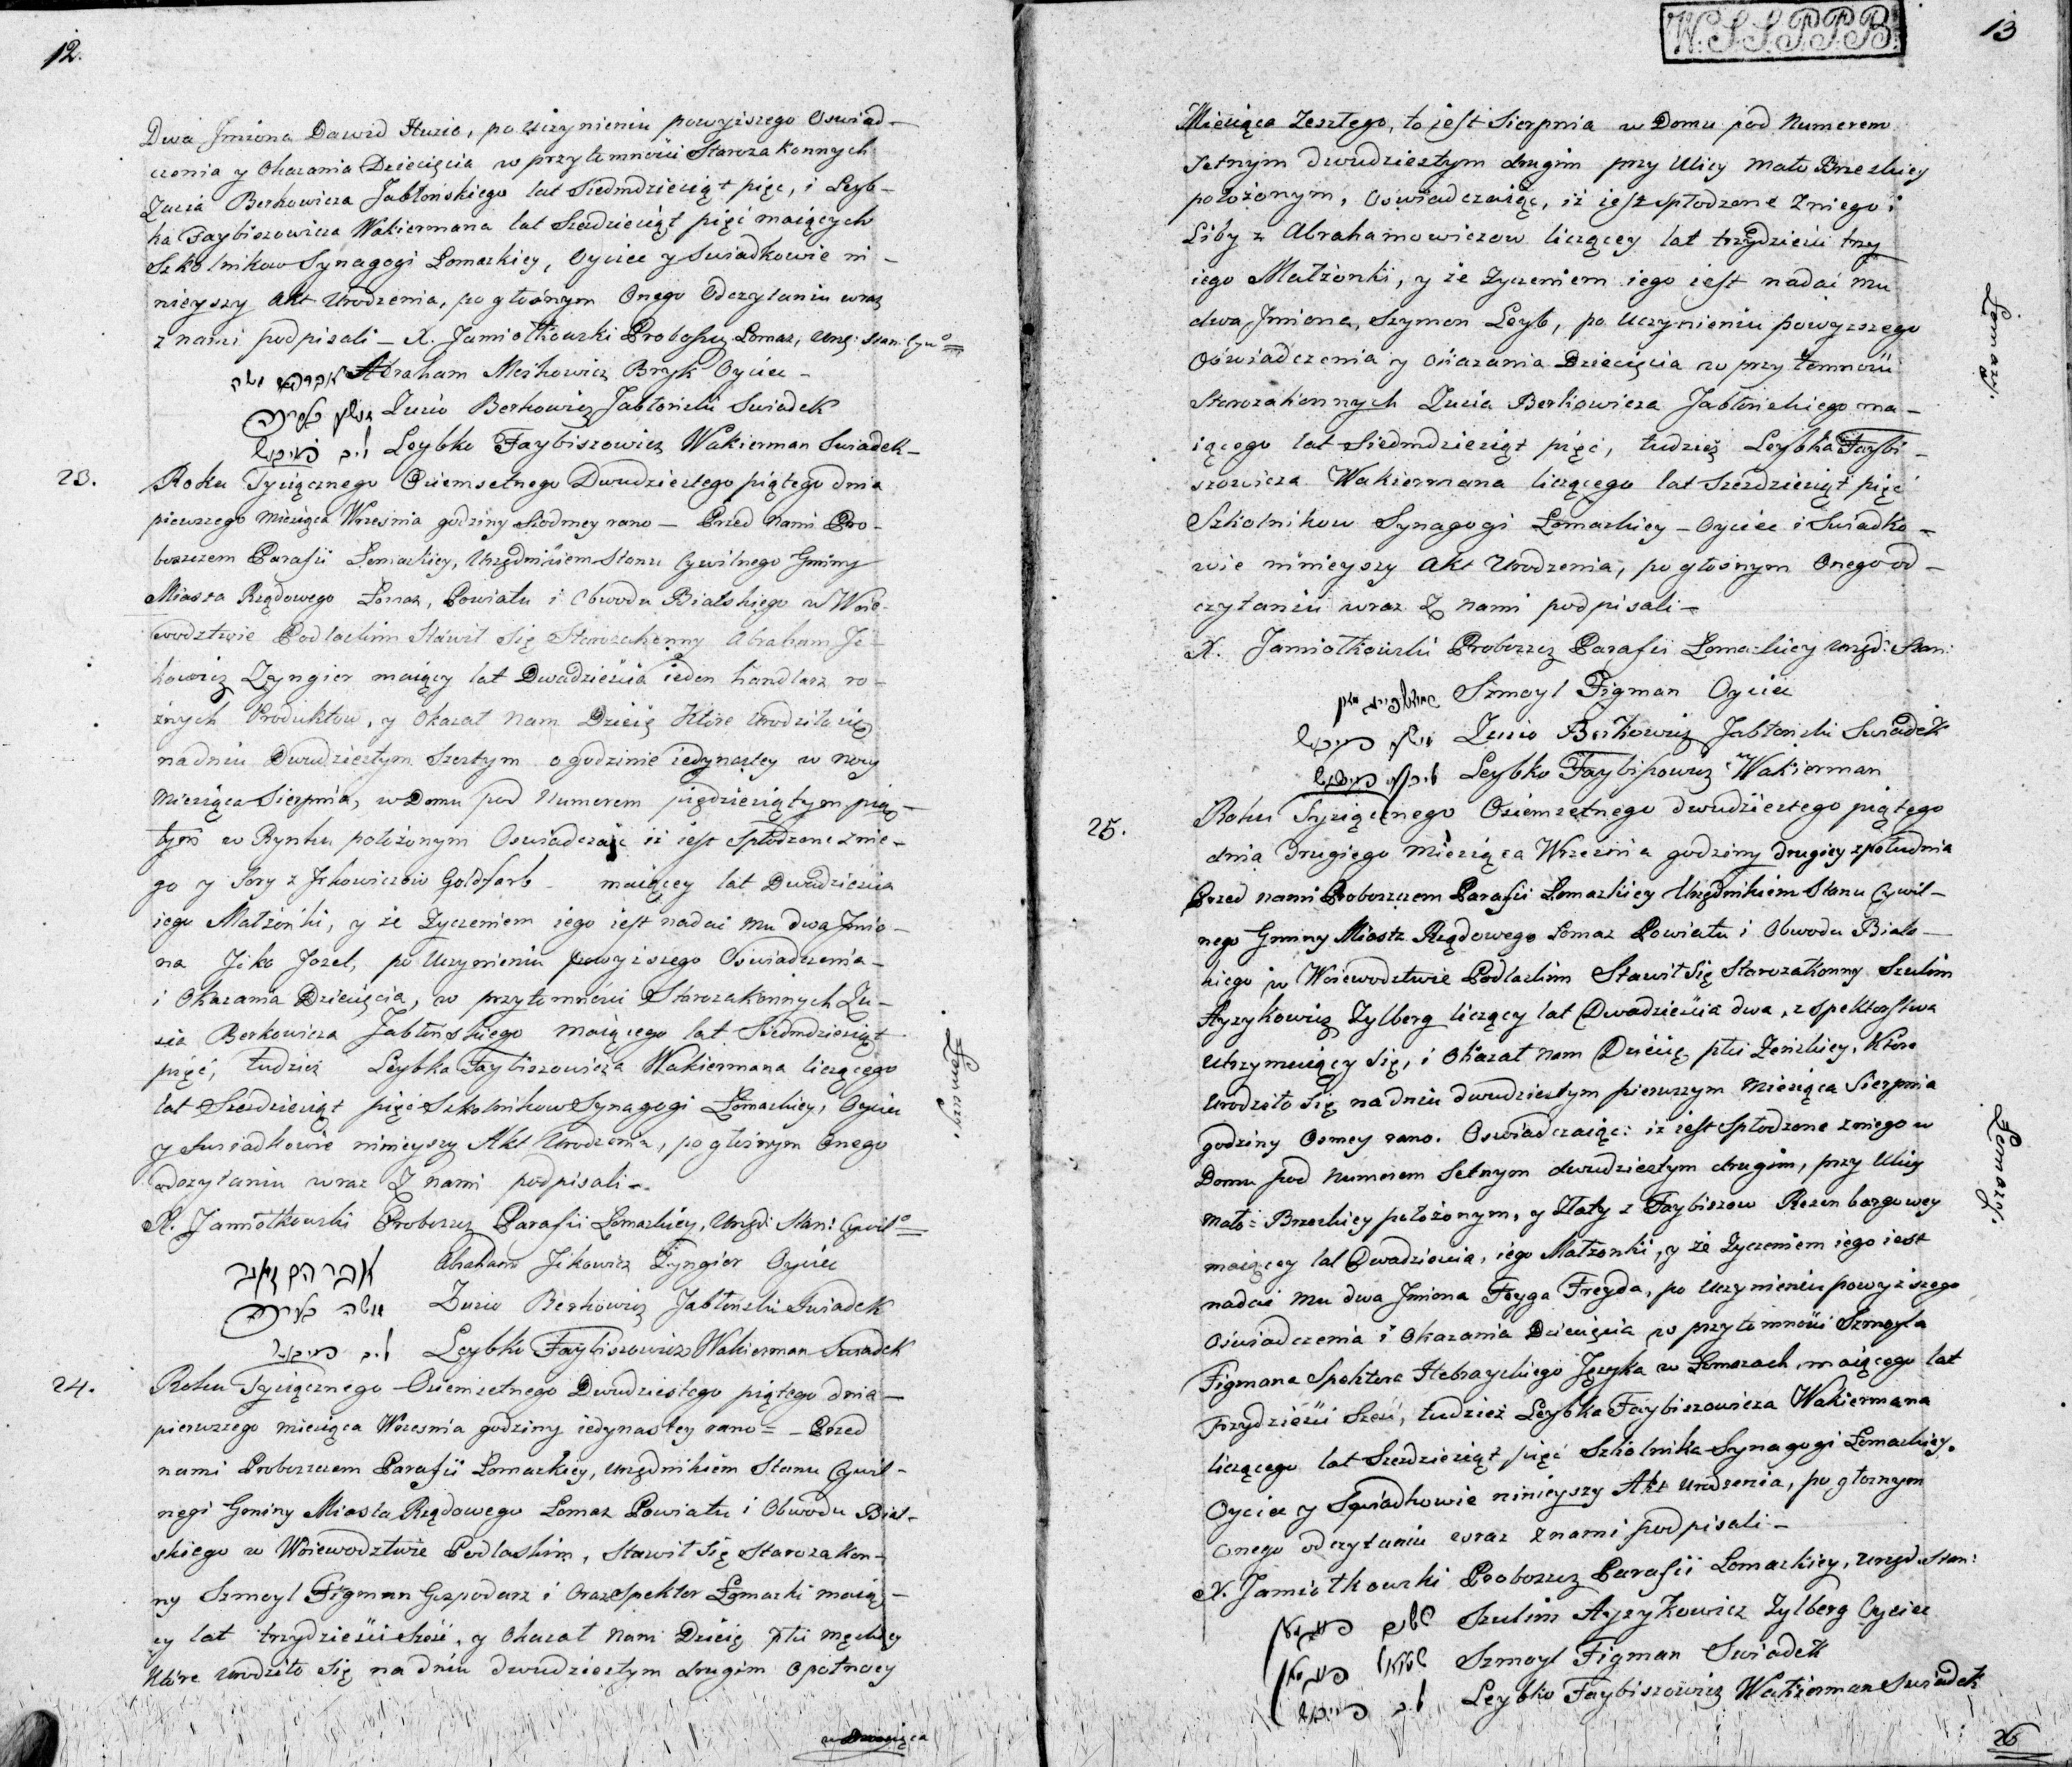 12.
Dwa Jmiona Dawid Zuzio, po uczynieniu powyższego Oswiad-
czenia y Okazania Dziecięcia w przytomności Starozakonnych
Zuzia Berkowicza Jabłońskiego lat Siedmdziesiąt pięć, i Leyb-
ka Faybiszowicza Wakiermana lat Sześdziesiąt pięć maiących
Szkolnikow Synagogi Łomaskiey, Oyciec y Swiadkowie ni-
nieyszy Akt Urodzenia, po głośnym Onego Odczytaniu wraz
z nami podpisali - X. Jamiołkowski Proboszcz Łomaz, Urzę: Stan: Cyw
Abraham Meskowicz Bryk Oyciec -
Zuzio Berkowicz Jabłoński Swiadek
Leybko Faybiszowicz Wakierman Swiadek -
23.
Roku Tysiącznego Osiemsetnego Dwudziestego piątego dnia
pierwszego Miesiąca Wrzesnia godziny Siodmey rano - Przed Nami Pro-
boszczem Parafii Łomaskiey, Urzędnikiem Stanu Cywilnego Gminy
Miasta Rządowego Łomaz, Powiatu i Obwodu Bialskiego w Woie-
wodztwie Podlaskim Stawił się Starozakonny Abraham Je-
kowicz Zyngier maiący lat Dwadzieścia ieden handlarz ro-
żnych Produktow, y Okazał Nam Dziecię Które Urodziło się
na dniu Dwudziestym Szostym o godzinie iedynastey w nocy
Miesiąca Sierpnia, w Domu pod Numerem pięćdziesiątym pią-
tym w Rynku położonym Oswiadczaiąc iż iest Spłodzone z nie-
go y Sory z Jckowiczow Goldfarb - maiącey lat Dwadzieścia
iego Małżonki, y że Życzeniem iego iest nadać mu dwa Jmio-
na Jcko Jozel, po Uczynieniu powyższego Oswiadczenia -
i Okazania Dziecięcia, w przytomności Starozakonnych Zu-
zia Berkowicza Jabłońskiego maiącego lat Siedmdziesiąt
pięć, tudzież Leybka Faybiszowicza Wakiermana liczącego
lat Sześdziesiąt pięć Szkolnikow Synagogi Łomaskiey, Oyciec
y Swiadkowie ninieyszy Akt Urodzenia, po głośnym Onego
odczytaniu wraz Z nami podpisali -
X. Jamiołkowski Proboszcz Parafii Łomaskiey, Urzęd: Stan: Cywil
Abraham Jckowicz Zyngier Oyciec
Zuzio Berkowicz Jabłoński Swiadek
Leybko Faybiszowicz Wakierman Swiadek
Łomazy.
24.
Roku Tysiącznego Osiemsetnego Dwudziestego piątego dnia -
pierwszego miesiąca Wrzesnia godziny iedynastey rano = - Przed
nami Proboszczem Parafii Łomaskiey, Urzędnikiem Stanu Cywil-
nego Gminy Miasta Rządowego Łomaz Powiatu i Obwodu Bial-
skiego w Woiewodztwie Podlaskim, Stawił się Starozakon-
ny Szmoyl Figman Gospodarz i Oraz Spektor Łomaski maią-
cy lat trzydzieści sześć, y Okazał Nam Dziecię płci męskiey
Które Urodziło się na dniu dwudziestym drugim o północy
13
W.S.S.P.P.B.
Miesiąca Zeszłego, to iest Sierpnia w Domu pod Numerem
Setnym dwudziestym drugim przy Ulicy Mało Brzeskiey
położonym, Oswiadczaiąc, iż iest spłodzone Zniego i
Liby z Abrahamowiczow liczącey lat trzydzieści trzy
iego Małżonki, y że Życzeniem iego iest nadać mu
dwa Jmiona, Szymon Leyb, po Uczynieniu powyższego
Oświadczenia y Okazania Dziecięcia w przytomności
Starozakonnych Zuzia Berkowicza Jabłońskiego ma-
iącego lat Siedmdziesiąt pięć, tudzież Leybka Faybi-
szowicza Wakiermana liczącego lat Sześdziesiąt pięć
Szkolnikow Synagogi Łomaskiey - Oyciec i Swiadko-
wie ninieyszy Akt Urodzenia, po głosnym Onego od-
czytaniu wraz Z nami podpisali -
X. Jamiołkowski Proboszcz Parafii Łomaskiey Urzęd: Stan:
Szmoyl Figman Oyciec
Zuzio Berkowicz Jabłoński Swiadek
Leybko Faybiszowicz Wakierman
Łomazy.
25.
Roku Tysiącznego Osiemsetnego dwudziestego piątego
dnia drugiego Miesiąca Wrzesnia godziny drugiey z południa
Przed nami Proboszczem Parafii Łomaskiey Urzędnikiem Stanu Cywil-
nego Gminy Miasta Rządowego Łomaz Powiatu i Obwodu Bials-
kiego w Woiewodztwie Podlaskim Stawił się Starozakonny Szulim
Ayzykowicz Zylberg liczący lat Dwadzieścia dwa, z spektorstwa
utrzymuiący się, i Okazał Nam Dziecię płci Żeńskiey, Które
Urodziło się na dniu dwudziestym pierwszym Miesiąca Sierpnia
godziny Osmey rano. Oswiadczaiąc: iż iest Spłodzone z niego w
Domu pod Numerem Setnym dwudziestym drugim, przy Ulicy
Mało = Brzeskiey położonym, y Złaty z Faybiszow Rozenbergowey
maiącey lat Dwadzieścia, iego Małżonki, y że Życzeniem iego iest
nadać mu dwa Jmiona Feyga Freyda, po Uczynieniu powyższego
Oświadczenia i Okazania Dziecięcia w przytomności Szmoyla
Figmana Spektora Hebrayskiego Języka w Łomazach, maiącego lat
trzydzieści Sześć, tudzież Leybka Faybiszowicza Wakiermana
liczącego lat Sześdziesiąt pięć Szkolnika Synagogi Łomaskiey.
Oyciec y Swiadkowie ninieyszy Akt Urodzenia, po głosnym
Onego odczytaniu wraz z nami podpisali -
X. Jamiołkowski Proboszcz Parafii Łomaskiey, Urzęd: Stan:
Szulim Ayzykowicz Zylberg Oyciec
Szmoyl Figman Swiadek
Leybko Faybiszowicz Wakierman Swiadek
Łomazy.
26